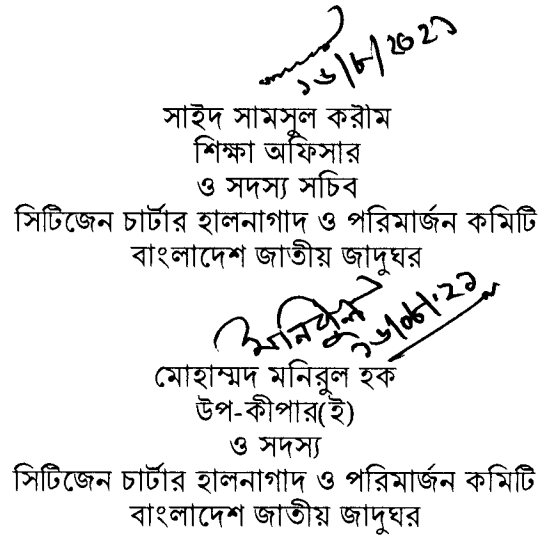 ১৬/৮/২০২১
সাইদ সামসুল করীম
শিক্ষা অফিসার
ও সদস্য সচিব
সিটিজেন চার্টার হালনাগাদ ও পরিমার্জন কমিটি
বাংলাদেশ জাতীয় জাদুঘর
মনিরুল ১৬/০৮/২১
মোহাম্মদ মনিরুল হক
উপ-কীপার(ই)
ও সদস্য
সিটিজেন চার্টার হালনাগাদ ও পরিমার্জন কমিটি
বাংলাদেশ জাতীয় জাদুঘর